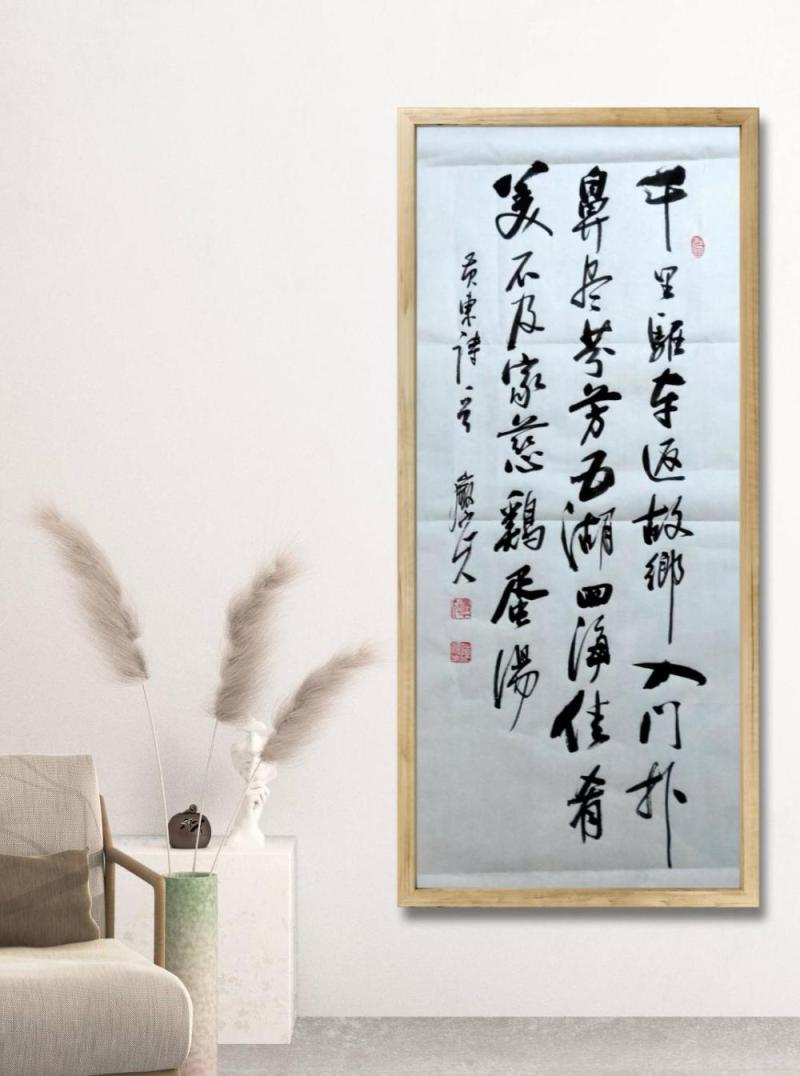 千里驅车返故鄉入门扑
鼻尽芬芳五湖四海佳肴
美不及家慈鷄蛋湯
黄東詩一首